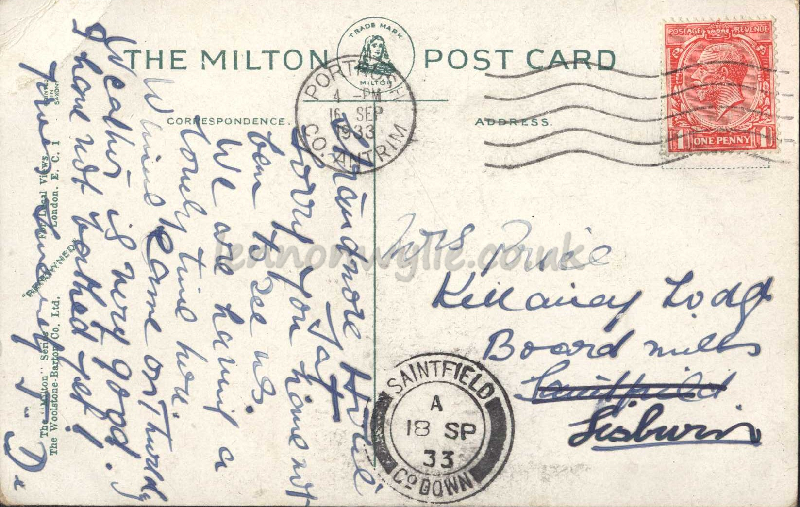 THE MILTON POST CARD
TRADE MARK
MILTON
CORRESPONDENCE.
ADDRESS.
PORTRUSH
4 - PM
16 SEP
1933
CO. ANTRIM
POSTAGE REVENUE
ONE PENNY
Strandmore Hotel
Sat
Sorry you have not
been to see us.
We are having a
lovely time here.
Winnie came on Thursday
Weather is very good. I
have not bathed yet!
Mrs Price
Killaney Lodge
Boardmills
Saintfield
Lisburn
SAINTFIELD
A
18 SP
33
CO DOWN
The "Milton" Series
The Woolstone-Barton Co. Ltd.
London. E.C.1
lennonwylie.co.uk